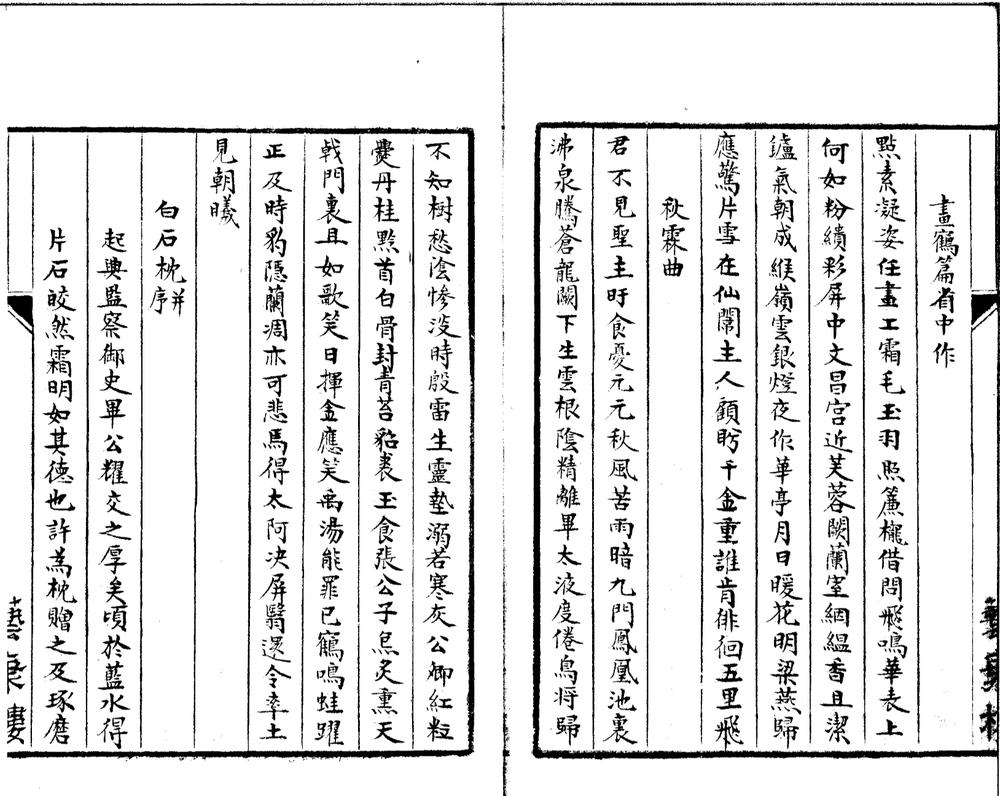 畫鶴篇省中作
點素凝姿任畫工霜毛玉羽照簾櫳借問飛鳴華表上
何如粉繢彩屏中文昌宫近芙蓉闕蘭室絪縕香且潔
鑪氣朝成緱嶺雲銀燈夜作華亭月日暖花明梁燕歸
應驚片雪在仙闈主人顧眄千金重誰肯徘徊五里飛
秋霖曲
君不見聖主旰食憂元元秋風苦雨暗九門鳳凰池裏
沸泉騰蒼龍闕下生雲根陰精離畢太液度倦鳥將歸
不知樹愁陰慘淡時殷雷生靈墊溺若寒灰公卿紅粒
爨丹桂黔首白骨封青苔貂裘玉食張公子炰炙熏天
戟門裏且如歌笑日揮金應笑禹湯能罪已鶴鳴蛙躍
正及時豹隱蘭凋亦可悲焉得太阿决屏翳還令率土
見朝曦
白石枕并序
起與監察御史畢公耀交之厚矣頃於藍水得
片石皎然霜明如其德也許為枕贈之及琢磨